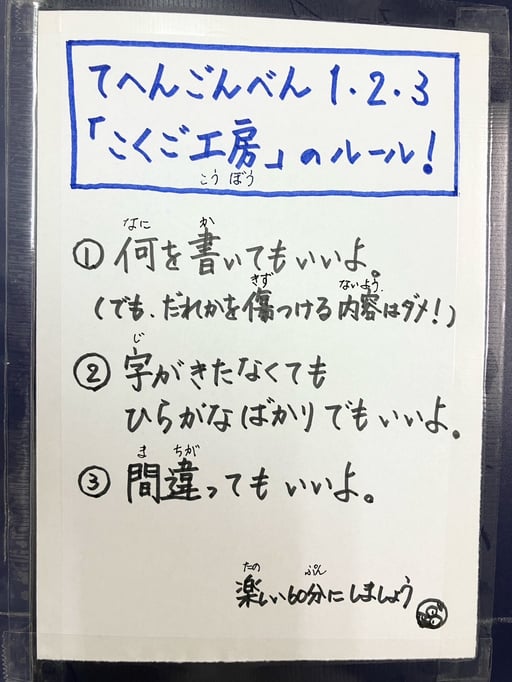 てへんごんべん1・2・3
「こくご工房」のルール!
こうぼう
なに か
①何を書いてもいいよ。
きず ないよう
(でも、だれかを傷つける内容はダメ!)
じ
②字がきたなくても
ひらがなばかりでもいいよ。
ま ちが
③間違ってもいいよ。
たの ぷん
楽しい60分にしましょう